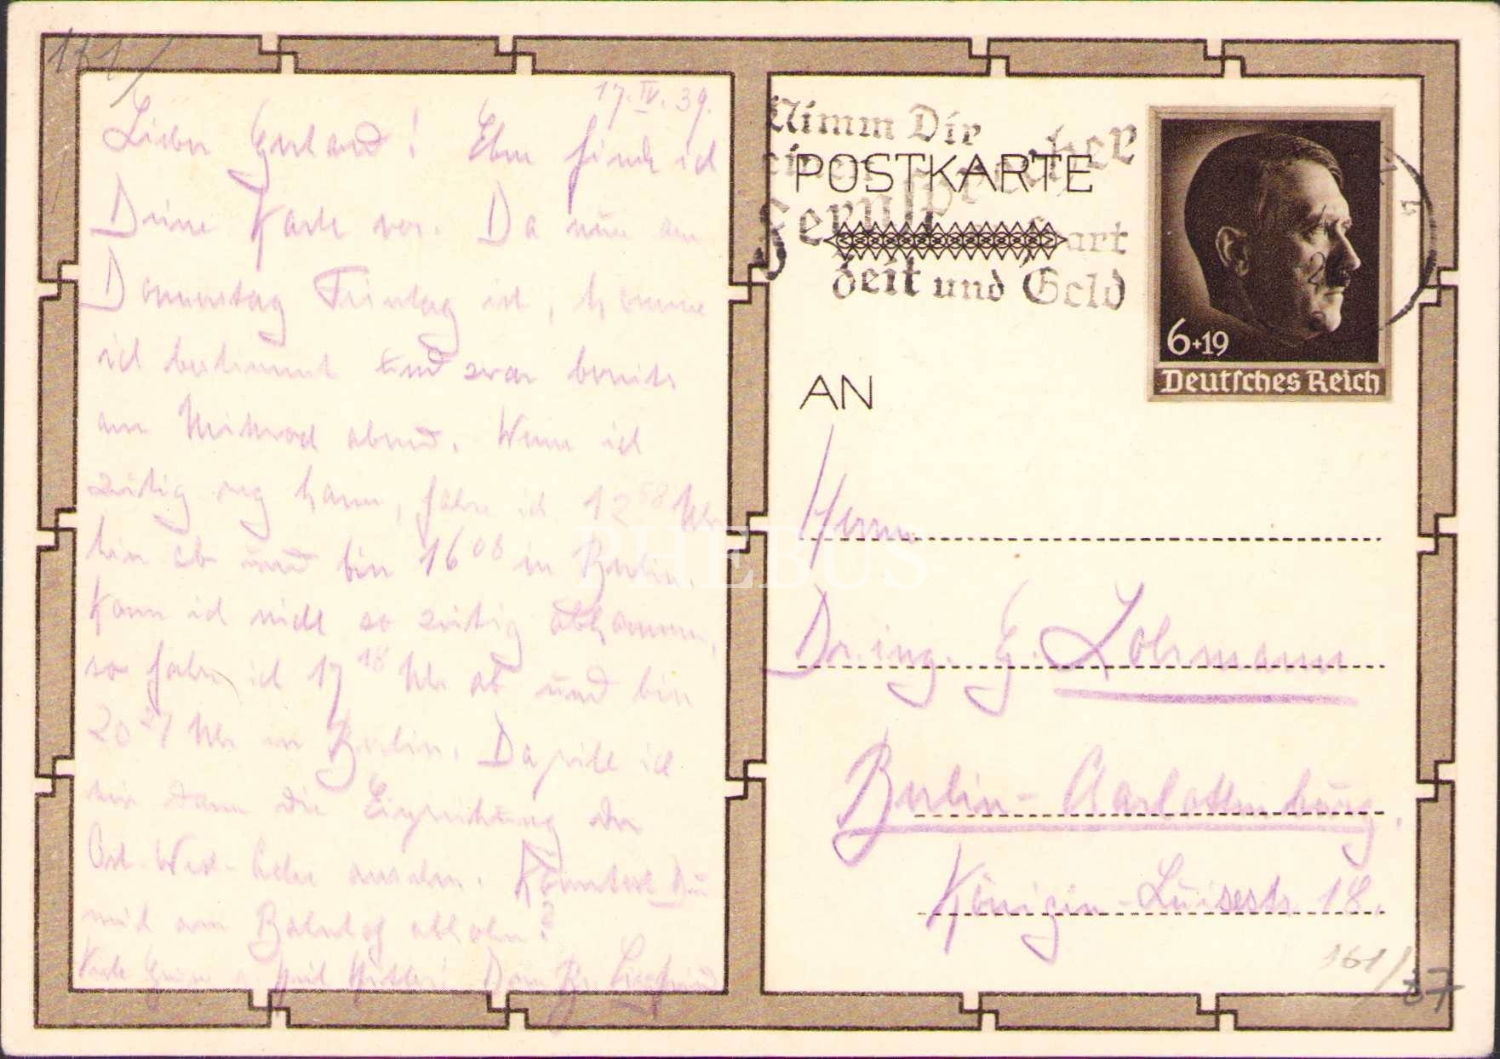 161/
17. IV. 39.
Lieber Gerhard! Eben finde ich
Deine Karte vor. Da nun am
Donnerstag Feiertag ist, komme
ich bestimmt und zwar bereits
am Mittwoch abend. Wenn ich
zeitig weg kann, fahre ich 12 58 Uhr
hier ab und bin 16 08 in Berlin.
Kann ich nicht so zeitig abkommen,
so fahre ich 17 18 Uhr ab und bin
20 27 Uhr in Berlin. Da will ich
mir dann die Einrichtung der
Ost-West-Achse ansehen. Könntest Du
mich am Bahnhof abholen?
Viele Grüsse u. Heil Hitler! Dein Br. Siegfried
Nimm Dir
einen
Fernsprecher
Zeit und Geld
POSTKARTE
6+19
Deutsches Reich
AN
Herrn
Dr. ing. G. Lohrmann
Berlin-Charlottenburg.
Königin-Luisestr 18.
161/
37
PHEBUS